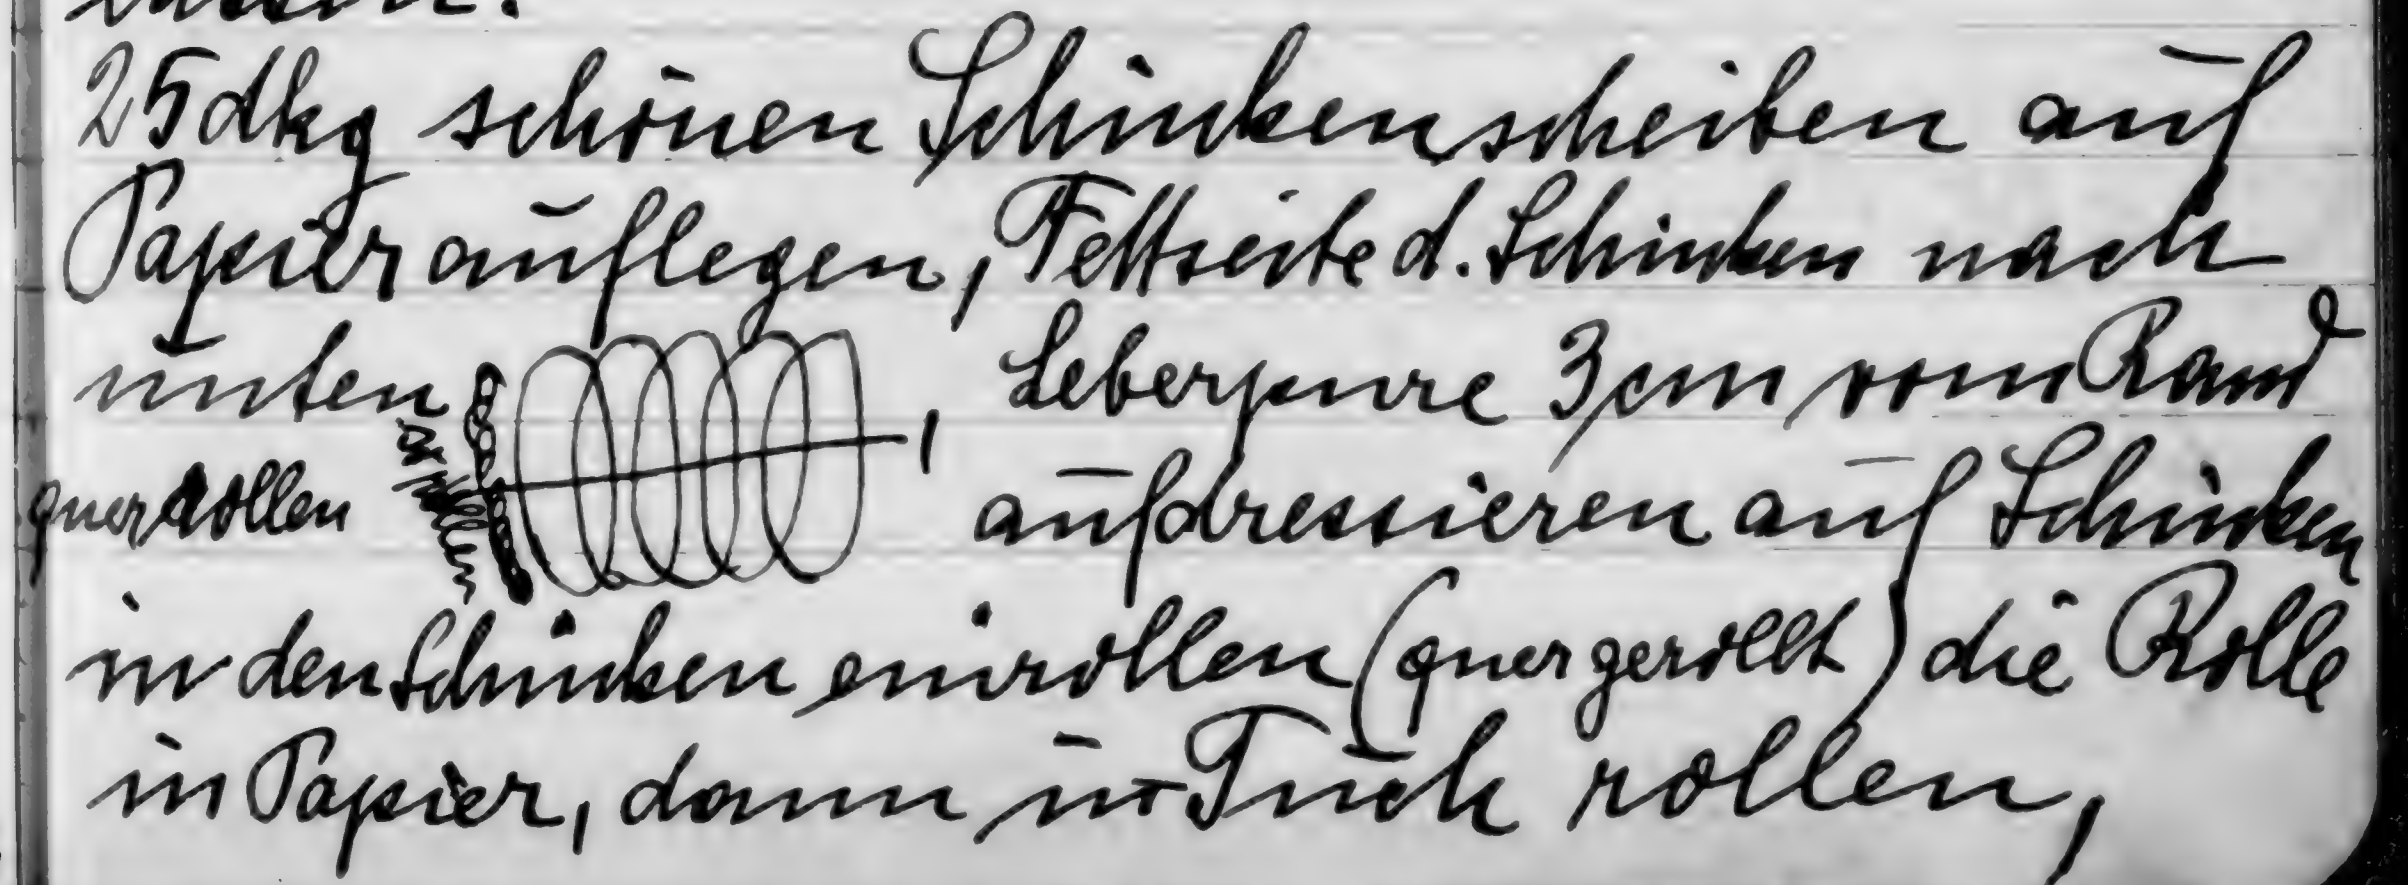 lassen.
25dkg schönen Schinkenscheiben auf
Papier auflegen, Fettseite d. Schinken nach
unten, Leberpure 3cm vom Rand
quer rollen aufdressieren auf Schinken
in den Schinken einrollen (quer gerollt) die Rolle
in Papier, dann in Tuch rollen,